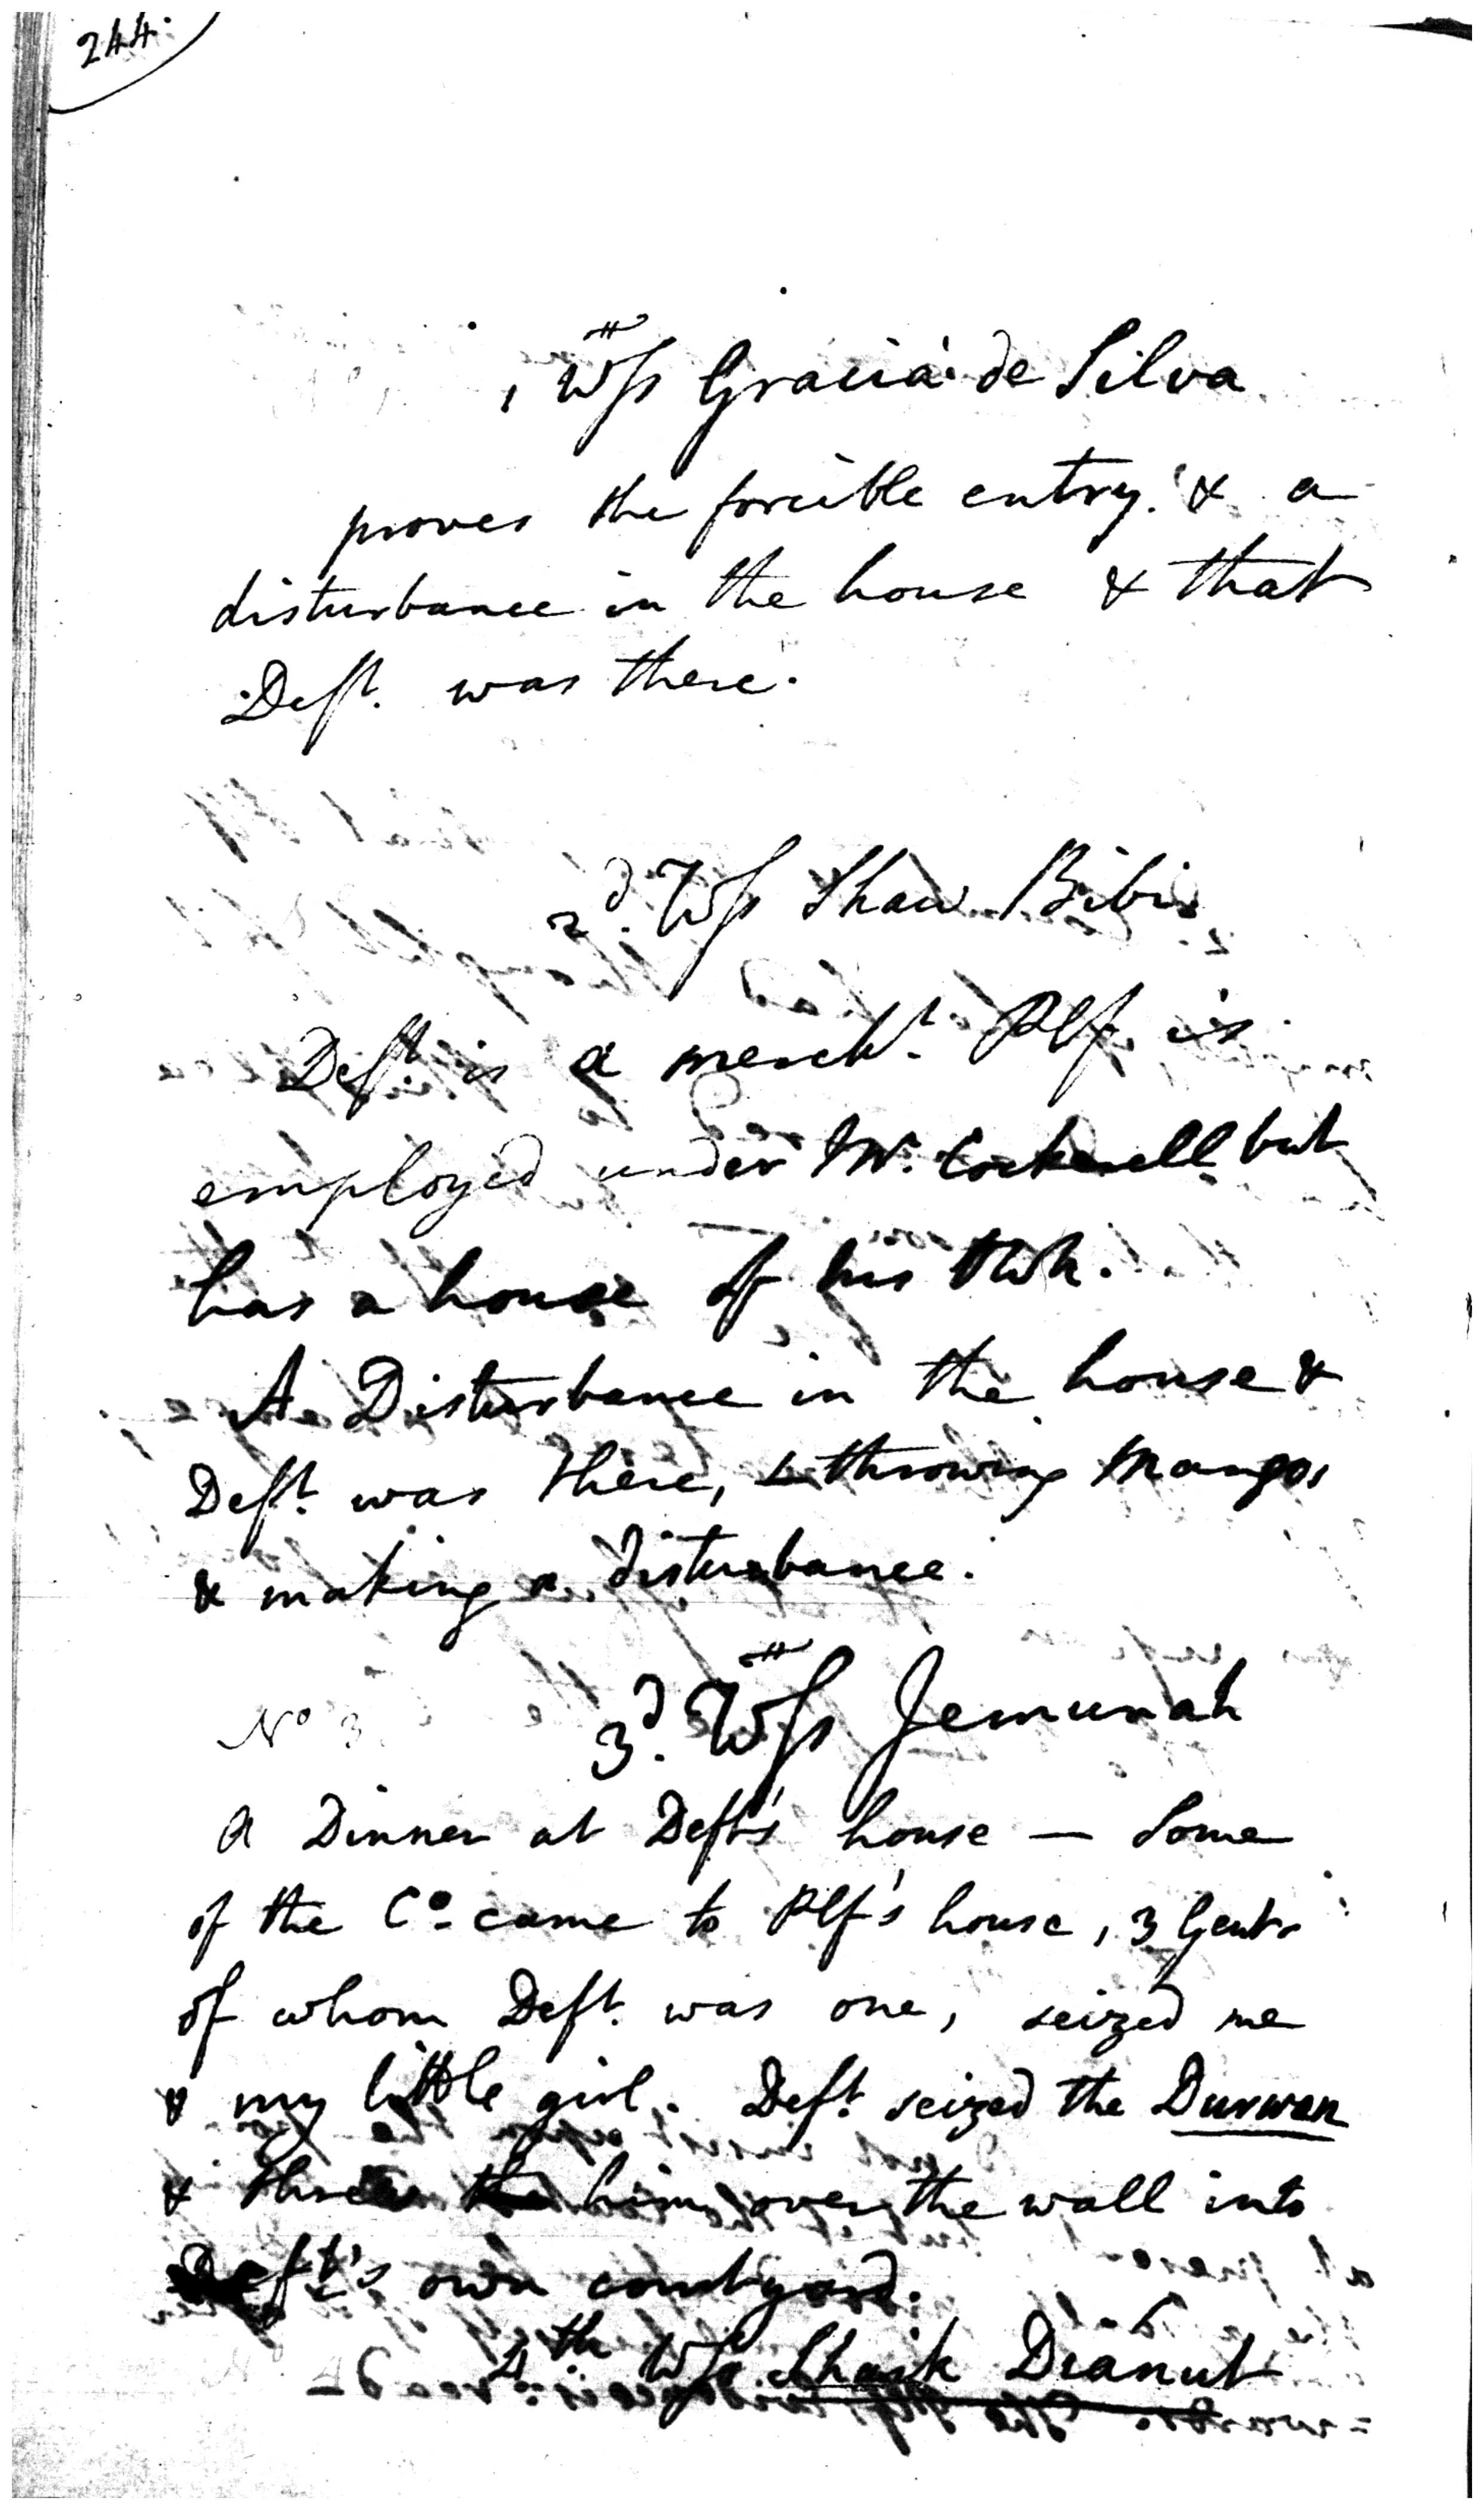 244.
1 Wss Gracia de Silva
proves the forcible entry. & a
disturbance in the house & that
Deft. was there.
2d. Wss Shaw Bibi
Deft. is a mercht. Plf is
employed under Mr. Cockerell but
has a house of his own.
A Disturbance in the house &
Deft. was there, & throwing Mangos
& making a disturbance.
No 3
3d. Wss Jemurah
A Dinner at Deft's house — Some
of the Co. came to Plf's house, 3 Gents
of whom Deft. was one, seized me
& my little girl. Deft. seized the Durwan
& threw him over the wall into
Deft's own courtyard.
4th. Wss Shaik Dianut